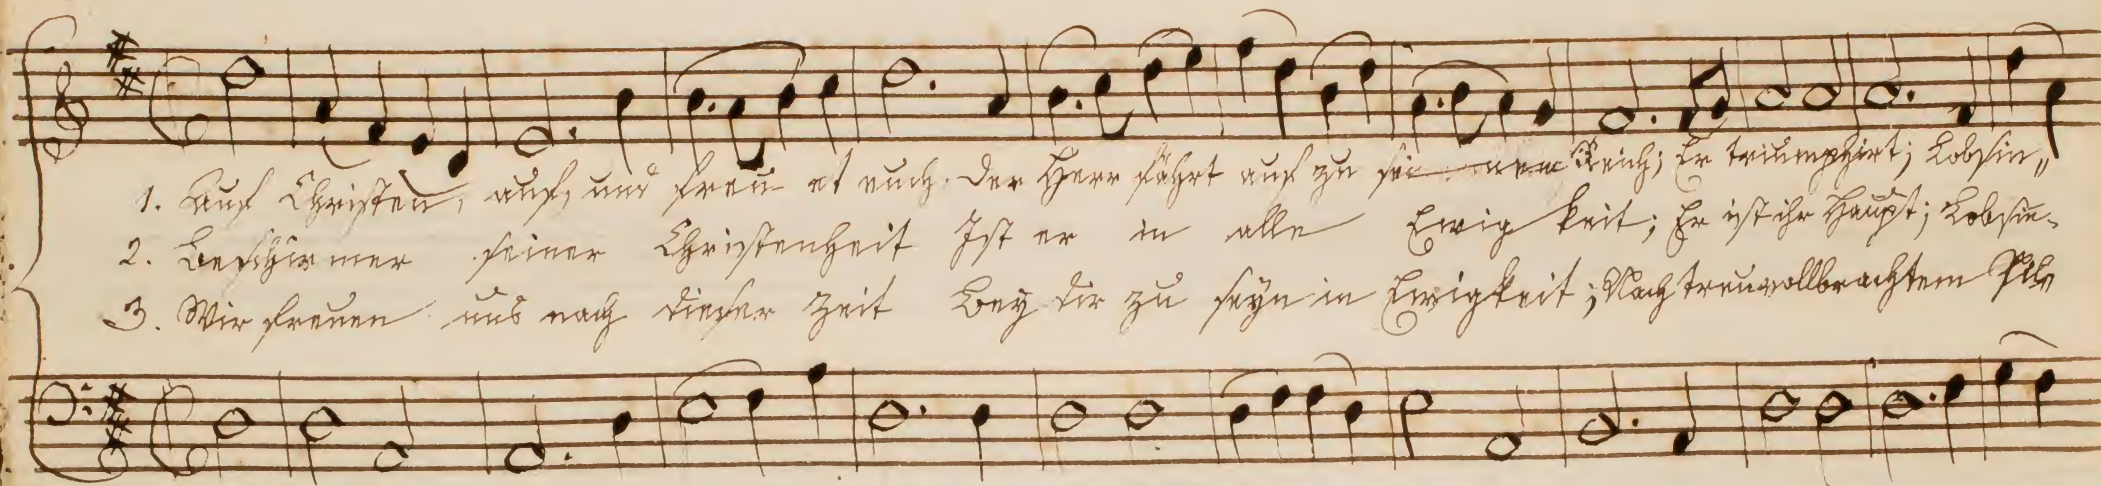 1. Auf Christen, auf, und freu et euch. Der Herr fährt auf zu sei- nem Reich; Er triumphirt; Lobsin„
2. Beschirmer seiner Christenheit Ist er in alle Ewig keit; Er ist ihr Haupt; Lobsin-
3. Wir freuen uns nach dieser Zeit Bey dir zu seyn in Ewigkeit; Nach treuvollbrachtem Pil„